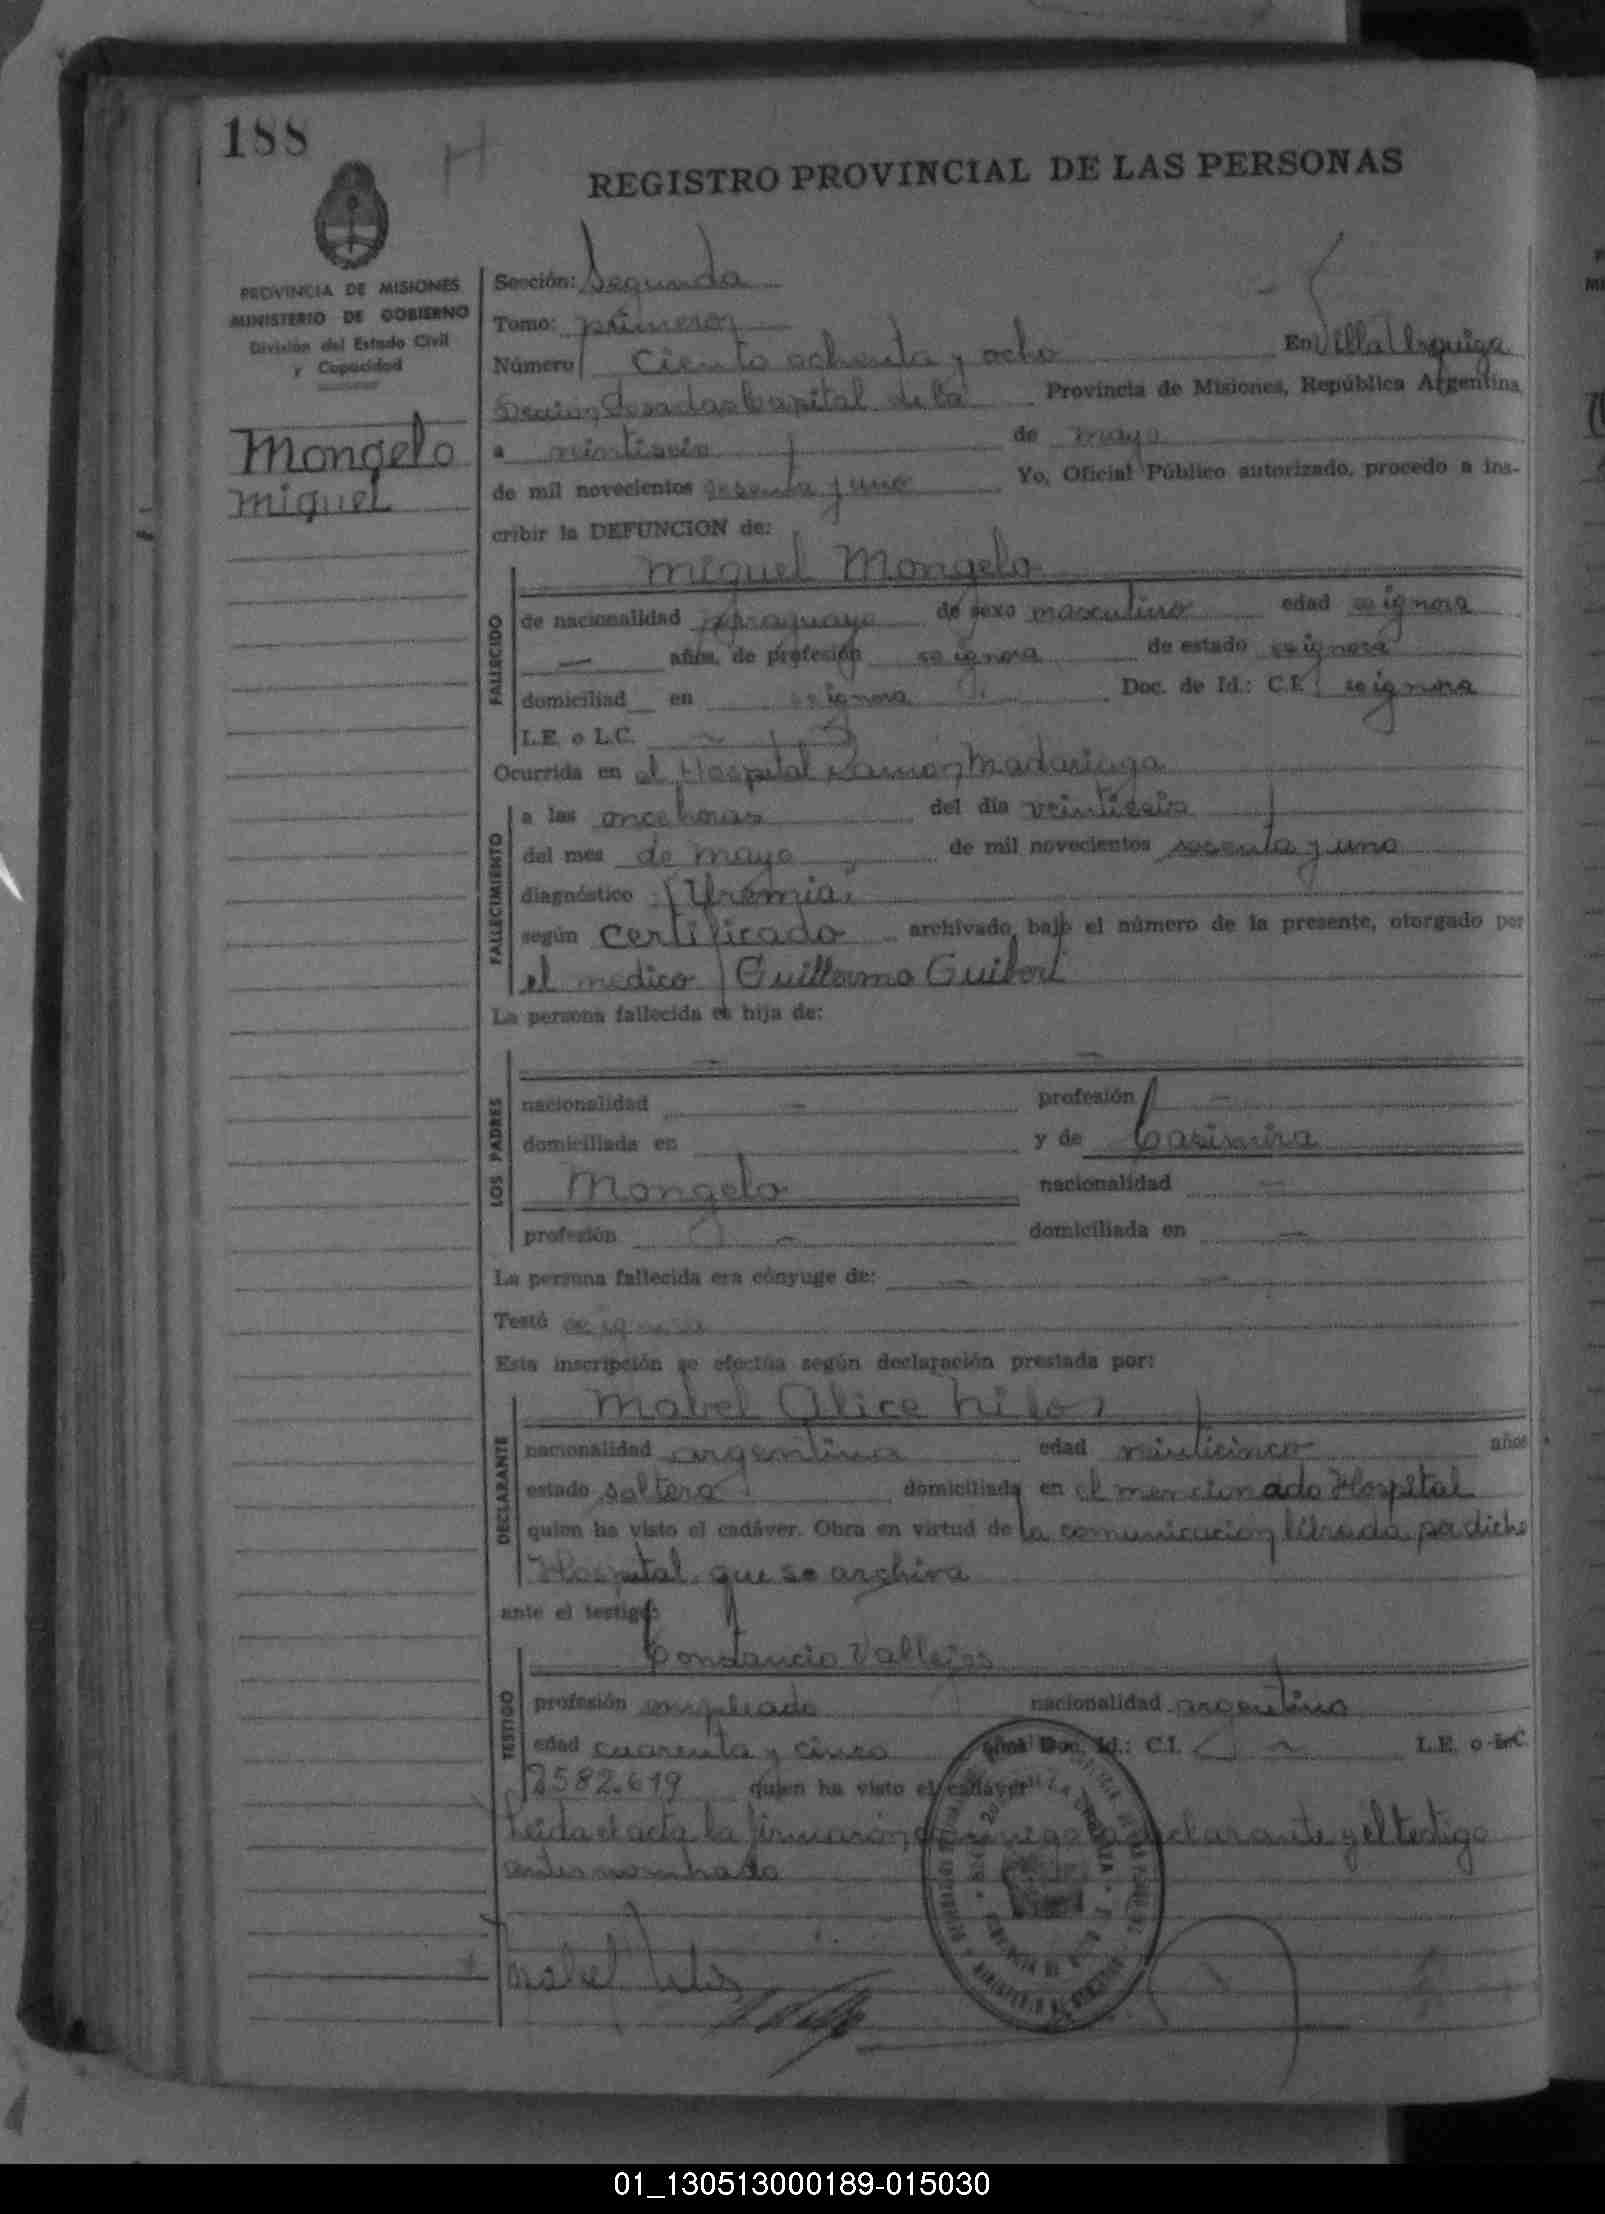 188
H
REGISTRO PROVINCIAL DE LAS PERSONAS
PROVINCIA DE MISIONES
MINISTERIO DE GOBIERNO
División del Estado Civil
y Capacidad
Mongelo
Miguel
Sección: Segunda
Tomo: primero
Número Ciento ochenta y ocho En Villa Urquiza
Sección Posadas Capital de la Provincia de Misiones, República Argentina,
a veintiseis de mayo
de mil novecientos sesenta y uno Yo, Oficial Público autorizado, procedo a ins-
cribir la DEFUNCION de:
Miguel Mongelo
FALLECIDO
de nacionalidad paraguayo de sexo masculino edad se ignora
— años, de profesión se ignora de estado se ignora
domiciliad en se ignora Doc. de Id.: C.I. se ignora
L.E. o L.C.
Ocurrida en el Hospital Ramon Madariaga
FALLECIMIENTO
a las once horas del día veintiseis
del mes de mayo de mil novecientos sesenta y uno
diagnóstico "Uremia"
según certificado archivado bajo el número de la presente, otorgado por
el medico Guillermo Guibert
La persona fallecida es hija de:
LOS PADRES
nacionalidad — profesión —
domiciliada en y de Casimira
Mongelo nacionalidad —
profesión — domiciliada en —
La persona fallecida era cónyuge de: — —
Testó se ignora
Esta inscripción se efectúa según declaración prestada por:
Mabel Alice
DECLARANTE
nacionalidad argentina edad veinticinco años
estado soltera domiciliada en el mencionado Hospital
quien ha visto el cadáver. Obra en virtud de la comunicacion librada por dicho
Hospital que se archiva
ante el testigo:
Constancio Vallejos
TESTIGO
profesión empleado nacionalidad argentino
edad cuarenta y cinco años Doc. Id.: C.I. L.E. o L.C.
2582.619 quien ha visto el cadáver
Leida el acta la firmaron conmigo la declarante y el testigo
antes nombrado
Mabel
01_130513000189-015030